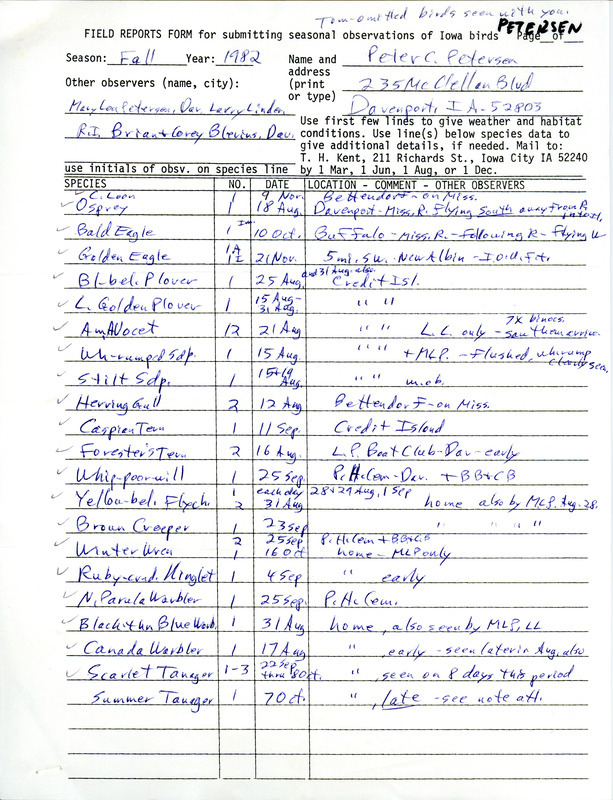 Tom - omitted birds seen with you.
PETERSEN
FIELD REPORTS FORM for submitting seasonal observations of Iowa birds Page of
Season: Fall Year: 1982 Name and Peter C. Petersen
address
Other observers (name, city): (print 235 McClellan Blvd
or type)
Mary Lou Petersen, Dav. Larry Linder, Davenport, IA - 52803
R.I. Brian & Corey Blevins, Dav.
Use first few lines to give weather and habitat
conditions. Use line(s) below species data to
give additional details, if needed. Mail to:
T. H. Kent, 211 Richards St., Iowa City IA 52240
use initials of obsv. on species line by 1 Mar, 1 Jun, 1 Aug, or 1 Dec.
SPECIES NO. DATE LOCATION - COMMENT - OTHER OBSERVERS
C. Loon 1 9 Nov. Bettendorf - on Miss.
Osprey 1 18 Aug. Davenport - Miss. R. Flying South away from R
Bald Eagle 1 Im. 10 Oct. Buffalo - Miss. R. - following R - flying W
Golden Eagle 1A 1I 21 Nov. 5 mi. S.W. New Albin - I.O.U. F.t.
Bl-bel. Plover 1 25 Aug and 31 Aug. also Credit Isl.
L. Golden Plover 1 15 Aug - 31 Aug. " "
Am. Avocet 12 21 Aug " " L.L. only - 7X binocs. saw them arrive
Wh-rumped Sdp. 1 15 Aug. " " + MLP. - Flushed, wh rump clearly seen
Stilt Sdp. 1 15+19 Aug " m.ob.
Herring Gull 2 12 Aug Bettendorf - on Miss.
Caspian Tern 1 11 Sep Credit Island
Forester's Tern 2 16 Aug. L.P. Boat Club - Dav - early
Whip-poor-will 1 25 Sep P. H. Cem - Dav. + BB+CB
Yellow-bel. Flych. 1 each day 28+29 Aug, 1 Sep
2 31 Aug home also by MLP. Aug. 28.
Brown Creeper 1 23 Sep " " " "
2 25 Sep P. H. Cem + BB+CB
Winter Wren 1 16 Oct home - MLP only
Ruby-crnd. Kinglet 1 4 Sep " early
N. Parula Warbler 1 25 Sep. P. H. Cem.
Black-thr Blue Warb. 1 31 Aug home, also seen by MLP, LL
Canada Warbler 1 17 Aug ", early - seen later in Aug. also
Scarlet Tanager 1-3 22 Sep thru 8 Oct. ", seen on 8 days this period
Summer Tanager 1 7 Oct. ", late - see note att.